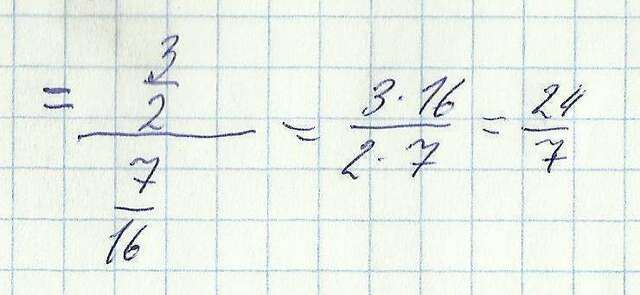 = 3/2 / 7/16 = 3·16 / 2·7 = 24/7